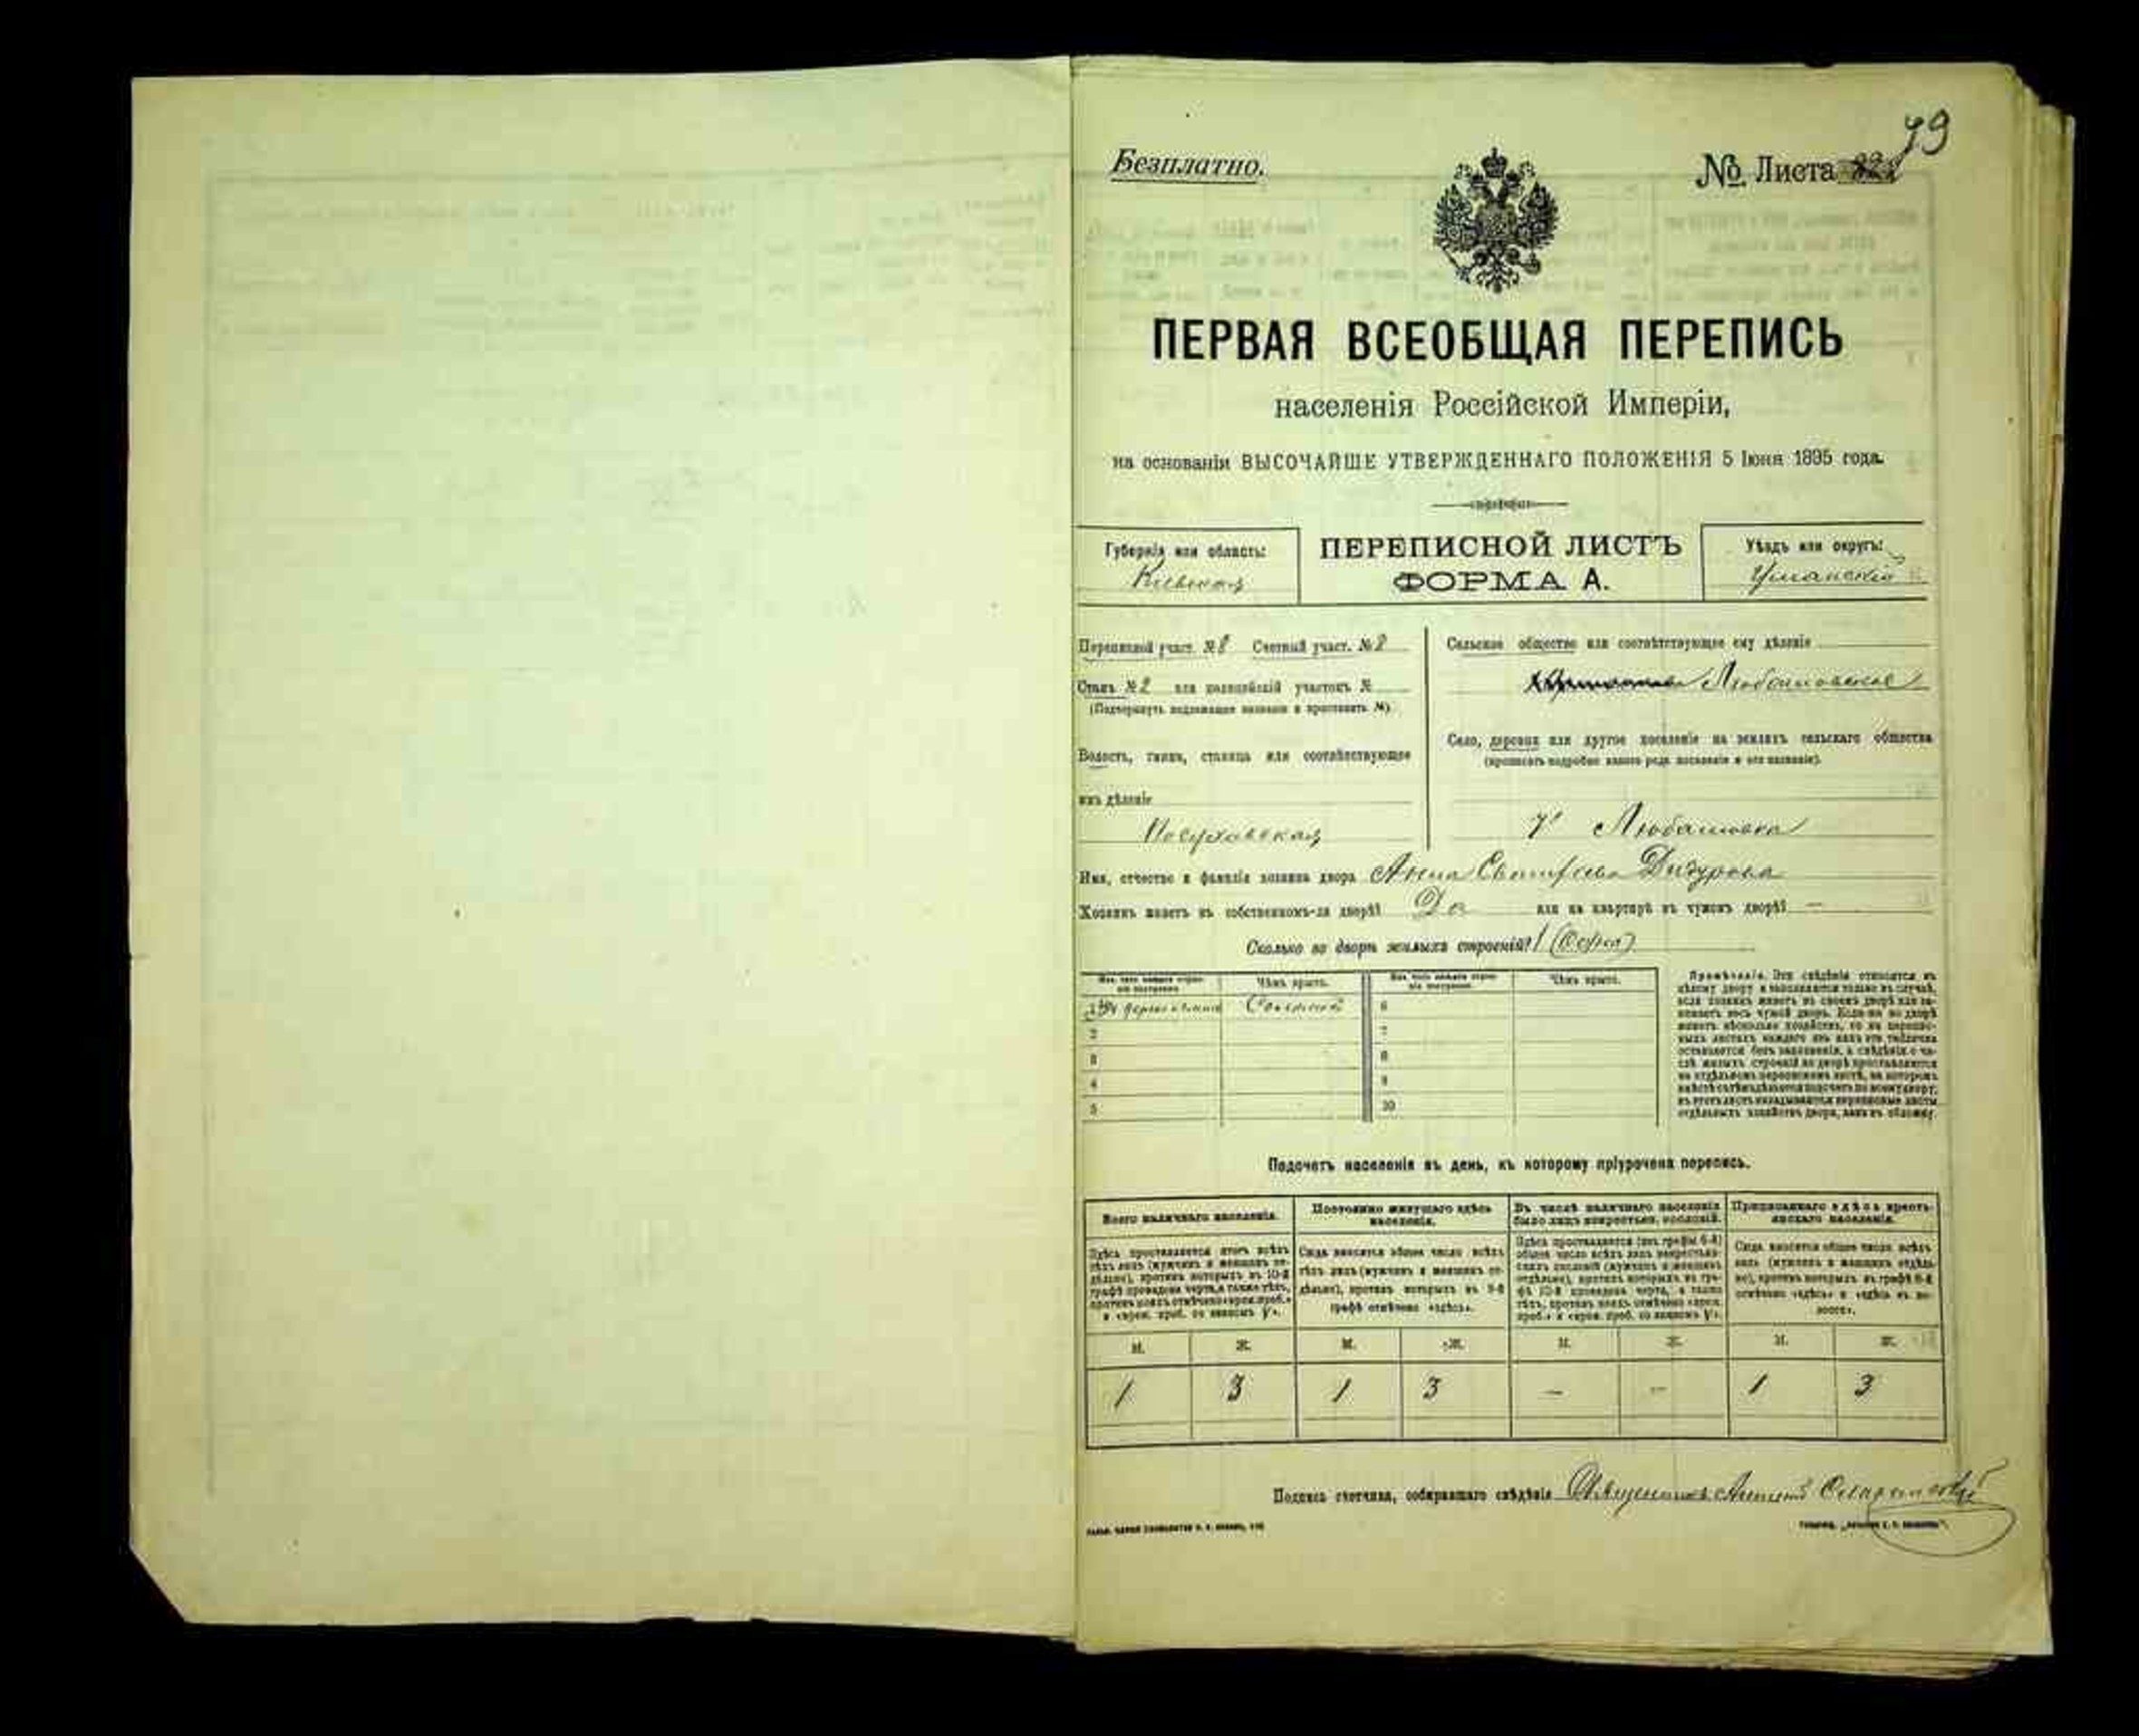 79
Безплатно.
№ Листа
ПЕРВАЯ ВСЕОБЩАЯ ПЕРЕПИСЬ
населенія Россійской Имперіи,
на основаніи ВЫСОЧАЙШЕ УТВЕРЖДЕННАГО ПОЛОЖЕНІЯ 5 Іюня 1895 года.
Губернія или область:
Кіевская
ПЕРЕПИСНОЙ ЛИСТЪ
ФОРМА А.
Уѣздъ или округъ:
Уманскій
Переписной участ. № 8 Счетный участ. № 2
Станъ № 2 или полицейскій участокъ №
(Подчеркнуть подлежащее названіе и проставить №).
Волость, гмина, станица или соотвѣтствующее
имъ дѣленіе
Посуховская
Сельское общество или соотвѣтствующее ему дѣленіе
Любашовское
Село, деревня или другое поселеніе на земляхъ сельскаго общества
(прописать подробно какого рода поселеніе и его названіе).
Любашовка
Имя, отчество и фамилія хозяина двора Анна Дидурова
Хозяинъ живетъ въ собственномъ-ли дворѣ? Да или на квартирѣ въ чужомъ дворѣ? —
Сколько во дворѣ жилыхъ строеній? 1 (Одно)
Изъ чего каждое строеніе построено.
Чѣмъ крыто.
Изъ чего каждое строеніе построено.
Чѣмъ крыто.
1 Соломой 6
2 7
3 8
4 9
5 10
Примѣчаніе. Эти свѣдѣнія относятся къ
цѣлому двору и заполняются только въ случаѣ,
если хозяинъ живетъ въ своемъ дворѣ или за-
нимаетъ весь чужой дворъ. Если-же во дворѣ
живетъ нѣсколько хозяйствъ, то на перепис-
ныхъ листахъ каждаго изъ нихъ эта табличка
остается безъ заполненія, а свѣдѣнія о чи-
слѣ жилыхъ строеній во дворѣ проставляются
на отдѣльномъ переписномъ листѣ, на которомъ
вмѣстѣ съ тѣмъ дѣлается подсчетъ по всему двору;
въ этотъ листъ вкладываются переписные листы
отдѣльныхъ хозяйствъ двора, какъ въ обложку.
Подсчетъ населенія въ день, къ которому пріурочена перепись.
Всего наличнаго населенія.
Постоянно живущаго здѣсь
населенія.
Въ числѣ наличнаго населенія
было лицъ некрестьян. сословій.
Приписаннаго здѣсь кресть-
янскаго населенія.
Здѣсь проставляется итогъ всѣхъ
тѣхъ лицъ (мужчинъ и женщинъ от-
дѣльно), противъ которыхъ въ 10-й
графѣ проведена черта, а также тѣхъ,
противъ коихъ отмѣчено «врем. проб.»
Сюда вносится общее число всѣхъ
тѣхъ лицъ (мужчинъ и женщинъ от-
дѣльно), противъ которыхъ въ 9-й
графѣ отмѣчено «здѣсь».
Здѣсь проставляется (изъ графы 6-й)
общее число всѣхъ лицъ некрестьян-
скихъ сословій (мужчинъ и женщинъ
отдѣльно), противъ которыхъ въ гра-
фѣ 10-й проведена черта, а также
тѣхъ, противъ коихъ отмѣчено «врем.
Сюда вносится общее число всѣхъ
лицъ (мужчинъ и женщинъ отдѣль-
но), противъ которыхъ въ графѣ 8-й
отмѣчено «здѣсь» и «здѣсь въ во-
лости».
М. Ж. М. Ж. М. Ж. М. Ж.
1 3 1 3 — — 1 3
Подпись счетчика, собиравшаго свѣдѣнія